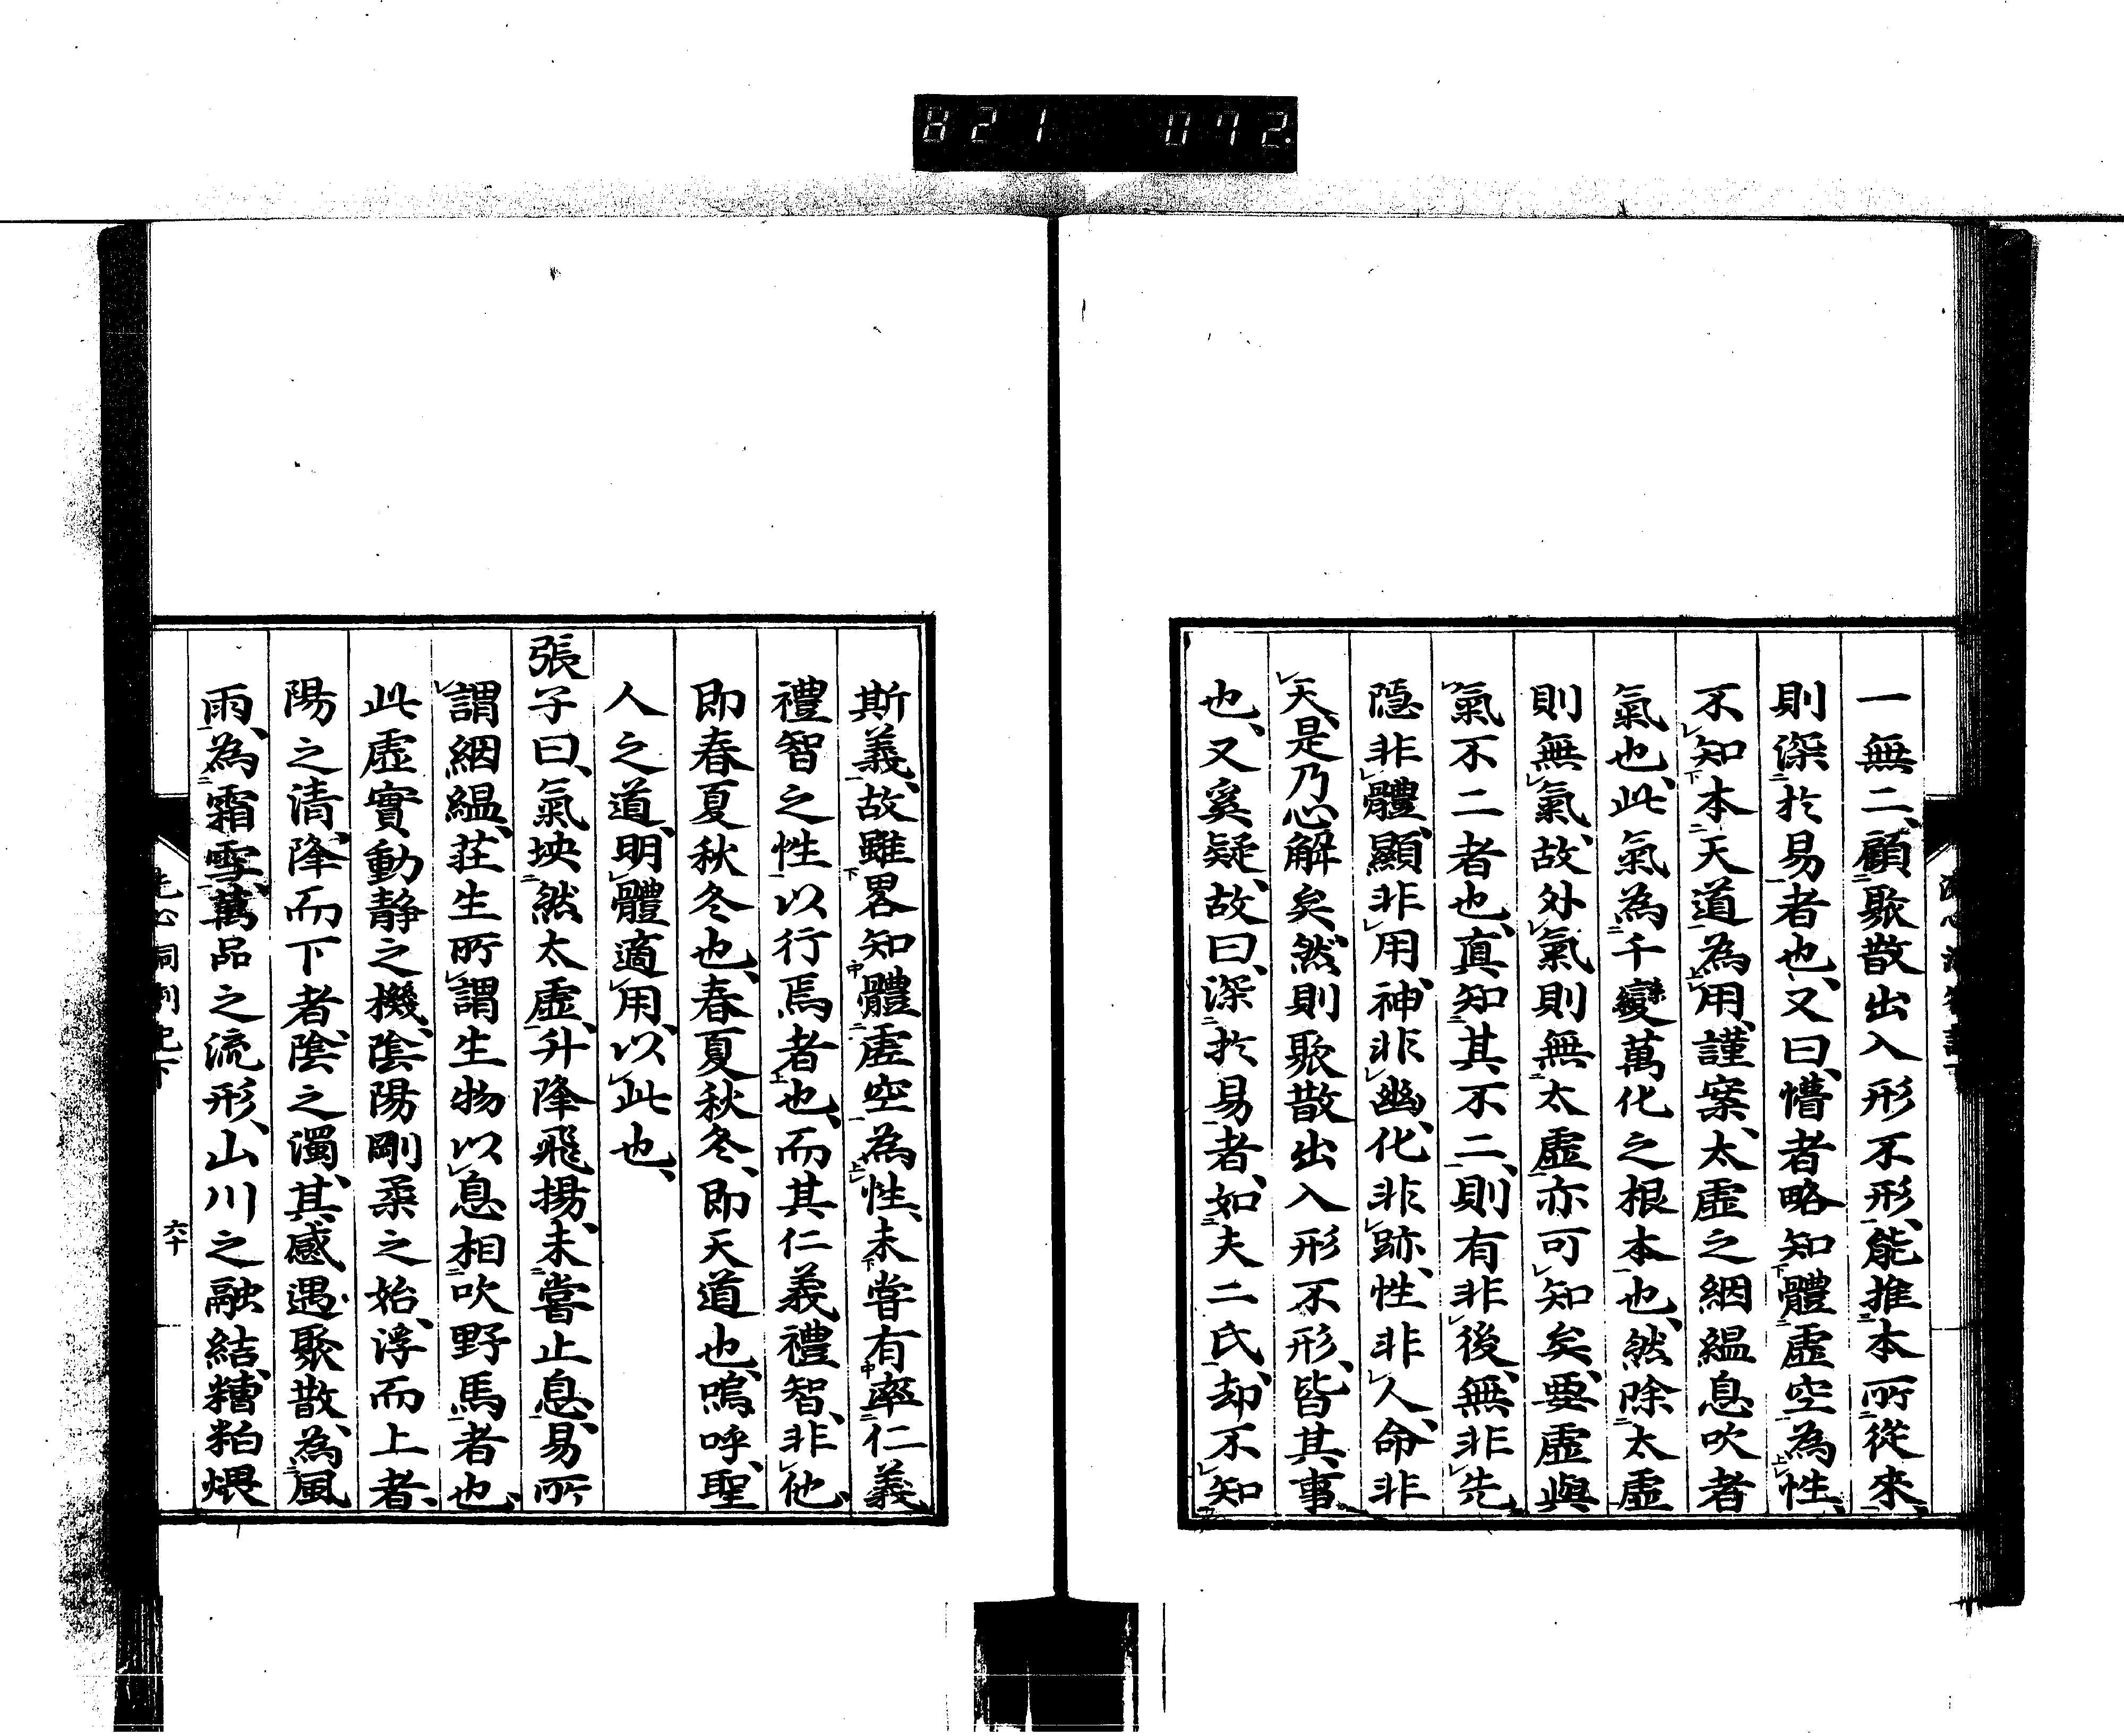 821 072.
一無二、顧聚散出入形不形、能推本所從來、
則深於易者也、又曰、懵者略知體虛空為性、
不知本天道為用、謹案、太虛之絪縕息吹者
氣也、此氣為千變萬化之根本也、然除太虛
則無氣、故外氣則無太虛亦可知矣、要虛與
氣不二者也、真知其不二、則有非後、無非先、
隱非體、顯非用、神非幽、化非跡、性非人、命非
天、是乃心解矣、然則聚散出入形不形、皆其事
也、又奚疑、故曰、深於易者、如夫二氏、却不知
斯義、故雖畧知體虛空為性、未嘗有率仁義
禮智之性以行焉者也、而其仁義禮智、非他、
即春夏秋冬也、春夏秋冬、即天道也、嗚呼、聖
人之道、明體適用、以此也、
張子曰、氣坱然太虛、升降飛揚、未嘗止息、易所
謂絪縕、莊生所謂生物以息相吹野馬者也、
此虛實動靜之機、陰陽剛柔之始、浮而上者、
陽之清、降而下者、陰之濁、其感遇聚散、為風
雨、為霜雪、萬品之流形、山川之融結、糟粕煨
洗心洞劄記下
六十